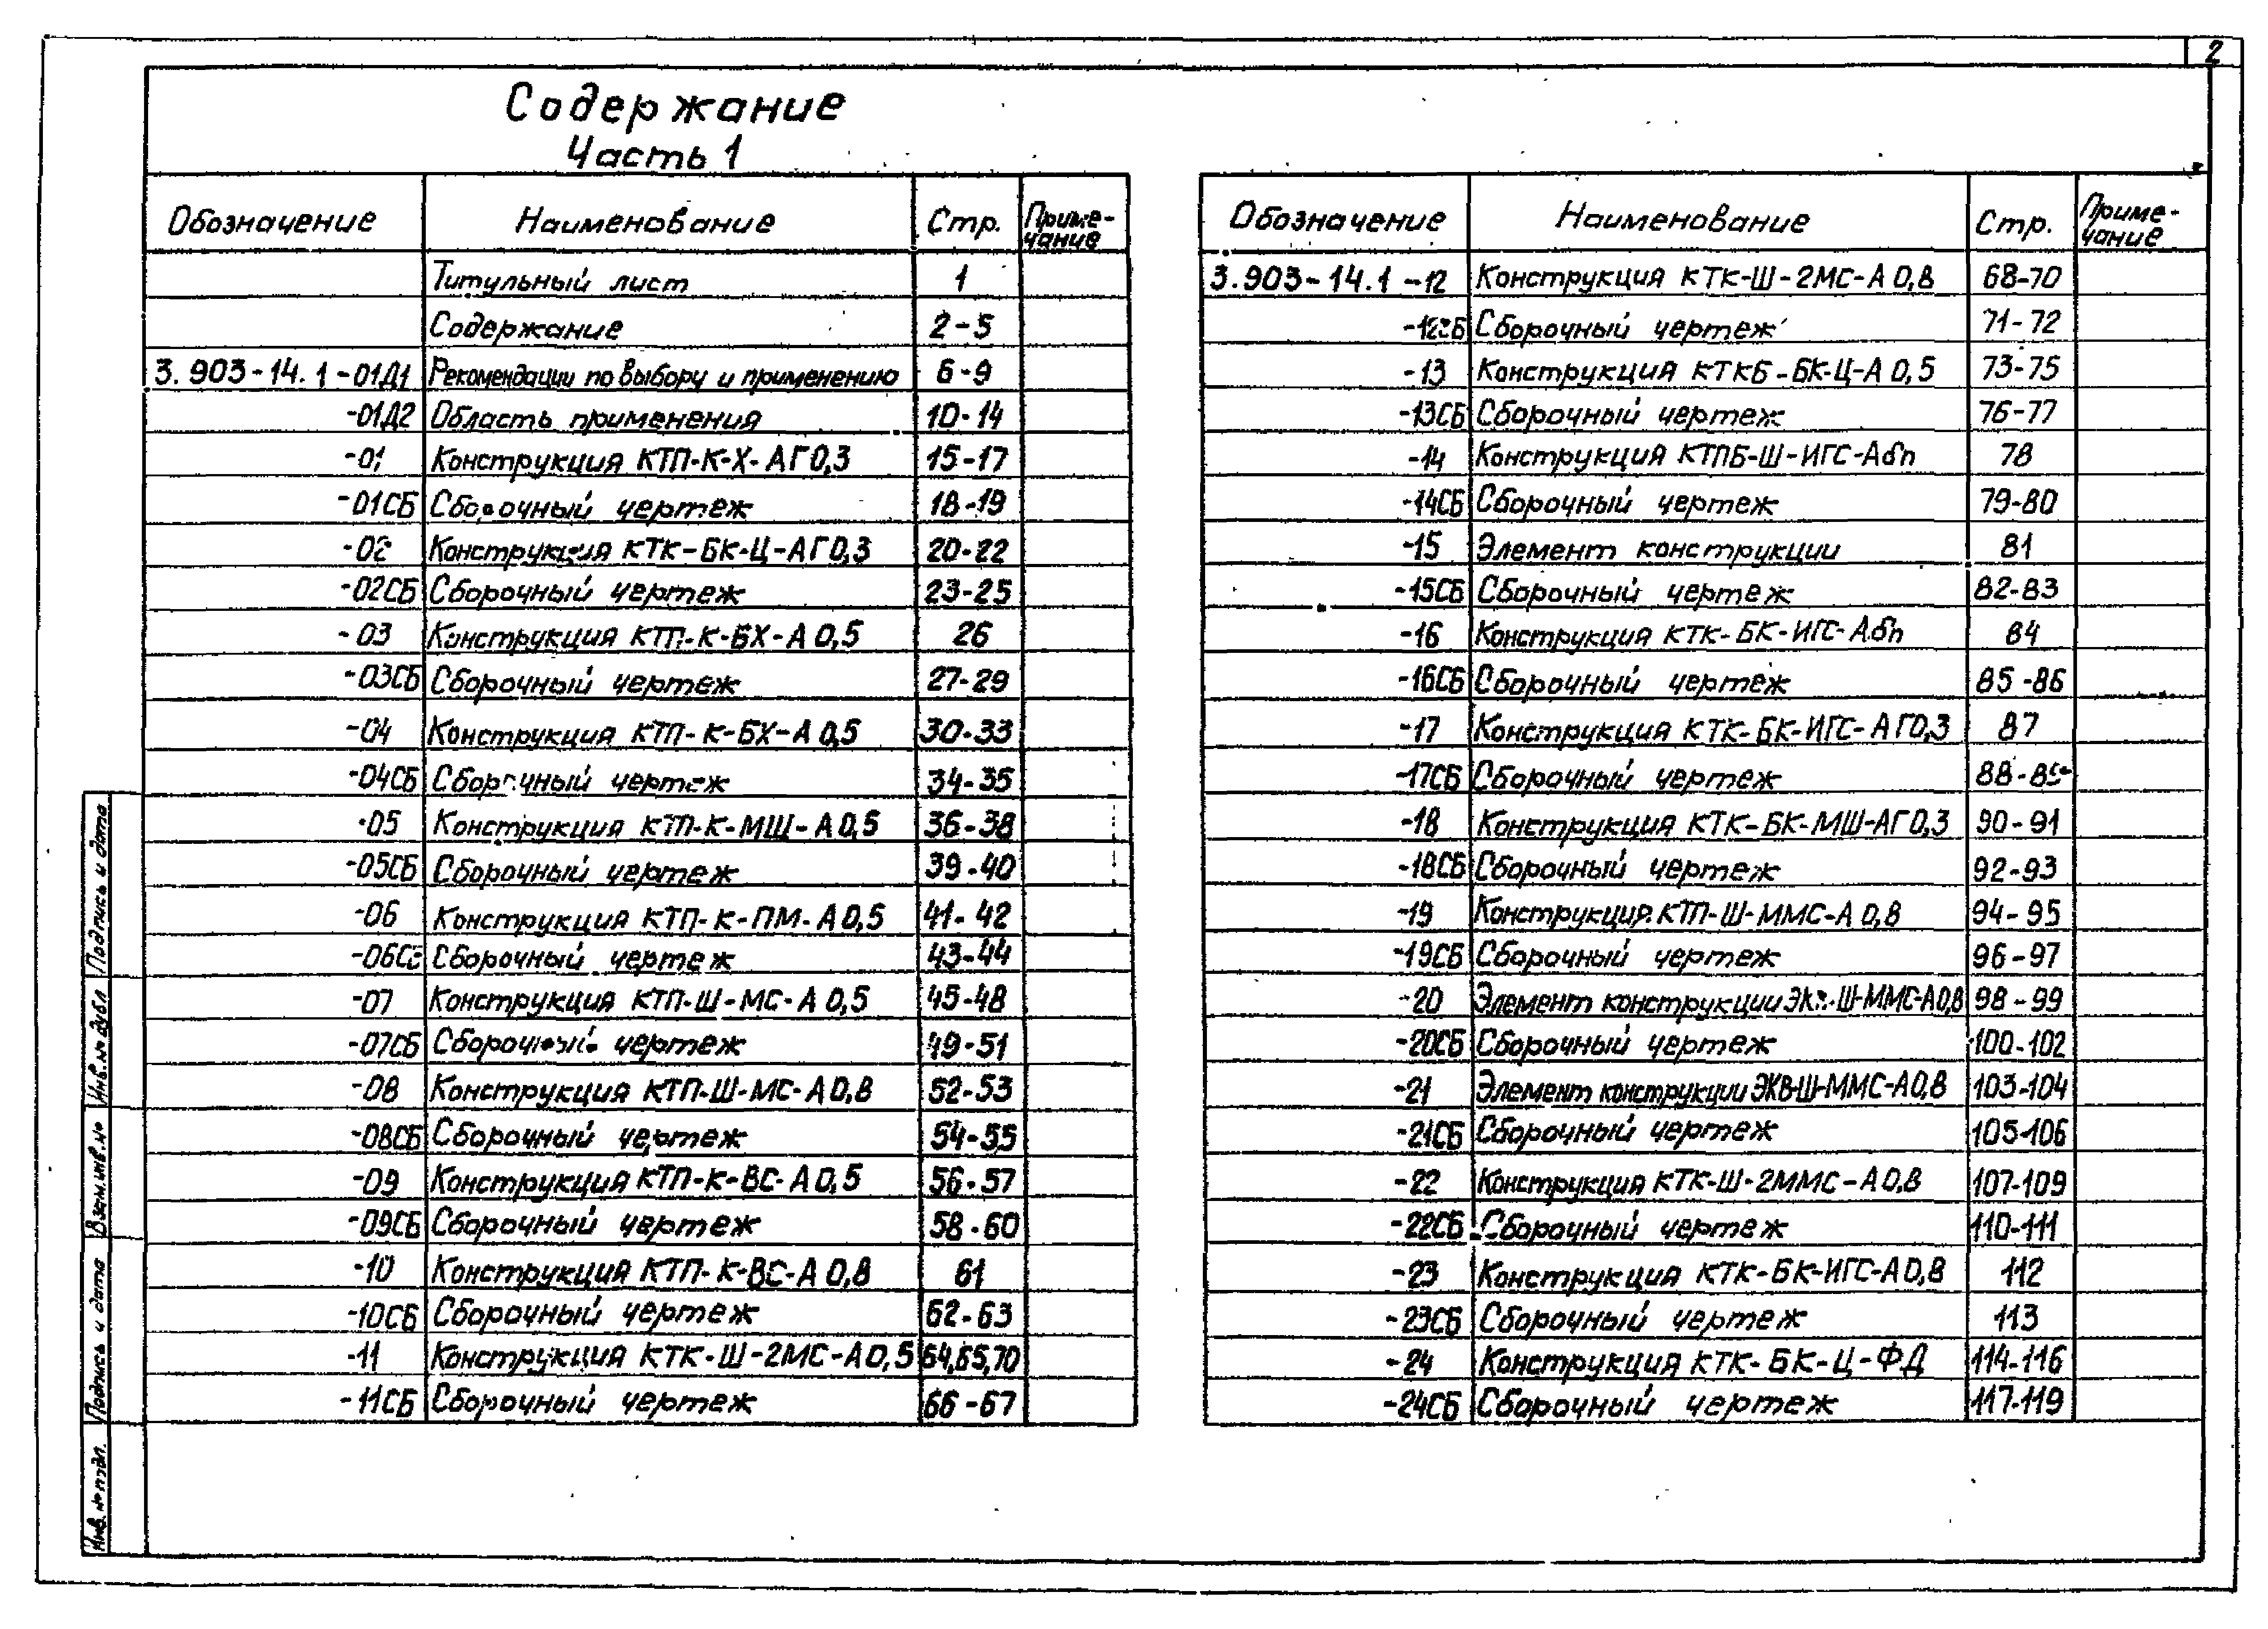 2
Содержание
Часть 1
Обозначение Наименование Стр. Приме-
чание
Титульный лист 1
Содержание 2-5
3.903-14.1-01Д1 Рекомендации по выбору и применению 6-9
-01Д2 Область применения 10-14
-01 Конструкция КТП-К-Х-АГ0,3 15-17
-01СБ Сборочный чертеж 18-19
-02 Конструкция КТК-БК-Ц-АГ0,3 20-22
-02СБ Сборочный чертеж 23-25
-03 Конструкция КТП-К-БХ-А0,5 26
-03СБ Сборочный чертеж 27-29
-04 Конструкция КТП-К-БХ-А0,5 30-33
-04СБ Сборочный чертеж 34-35
-05 Конструкция КТП-К-МШ-А0,5 36-38
-05СБ Сборочный чертеж 39-40
-06 Конструкция КТП-К-ПМ-А0,5 41-42
-06СБ Сборочный чертеж 43-44
-07 Конструкция КТП-Ш-МС-А0,5 45-48
-07СБ Сборочный чертеж 49-51
-08 Конструкция КТП-Ш-МС-А0,8 52-53
-08СБ Сборочный чертеж 54-55
-09 Конструкция КТП-К-ВС-А0,5 56-57
-09СБ Сборочный чертеж 58-60
-10 Конструкция КТП-К-ВС-А0,8 61
-10СБ Сборочный чертеж 62-63
-11 Конструкция КТК-Ш-2МС-А0,5 64,65,70
-11СБ Сборочный чертеж 66-67
Обозначение Наименование Стр. Приме-
чание
3.903-14.1-12 Конструкция КТК-Ш-2МС-А0,8 68-70
-12СБ Сборочный чертеж 71-72
-13 Конструкция КТКБ-БК-Ц-А0,5 73-75
-13СБ Сборочный чертеж 76-77
-14 Конструкция КТПБ-Ш-ИГС-Абп 78
-14СБ Сборочный чертеж 79-80
-15 Элемент конструкции 81
-15СБ Сборочный чертеж 82-83
-16 Конструкция КТК-БК-ИГС-Абп 84
-16СБ Сборочный чертеж 85-86
-17 Конструкция КТК-БК-ИГС-АГ0,3 87
-17СБ Сборочный чертеж 88-89
-18 Конструкция КТК-БК-МШ-АГ0,3 90-91
-18СБ Сборочный чертеж 92-93
-19 Конструкция КТП-Ш-ММС-А0,8 94-95
-19СБ Сборочный чертеж 96-97
-20 Элемент конструкции 98-99
-20СБ Сборочный чертеж 100-102
-21 Элемент конструкции ЭКВ-Ш-ММС-А0,8 103-104
-21СБ Сборочный чертеж 105-106
-22 Конструкция КТК-Ш-2ММС-А0,8 107-109
-22СБ Сборочный чертеж 110-111
-23 Конструкция КТК-БК-ИГС-А0,8 112
-23СБ Сборочный чертеж 113
-24 Конструкция КТК-БК-Ц-ФД 114-116
-24СБ Сборочный чертеж 117-119
Подпись и дата
Инв.№ дубл
Взам.инв.№
Подпись и дата
Инв.№ подл.